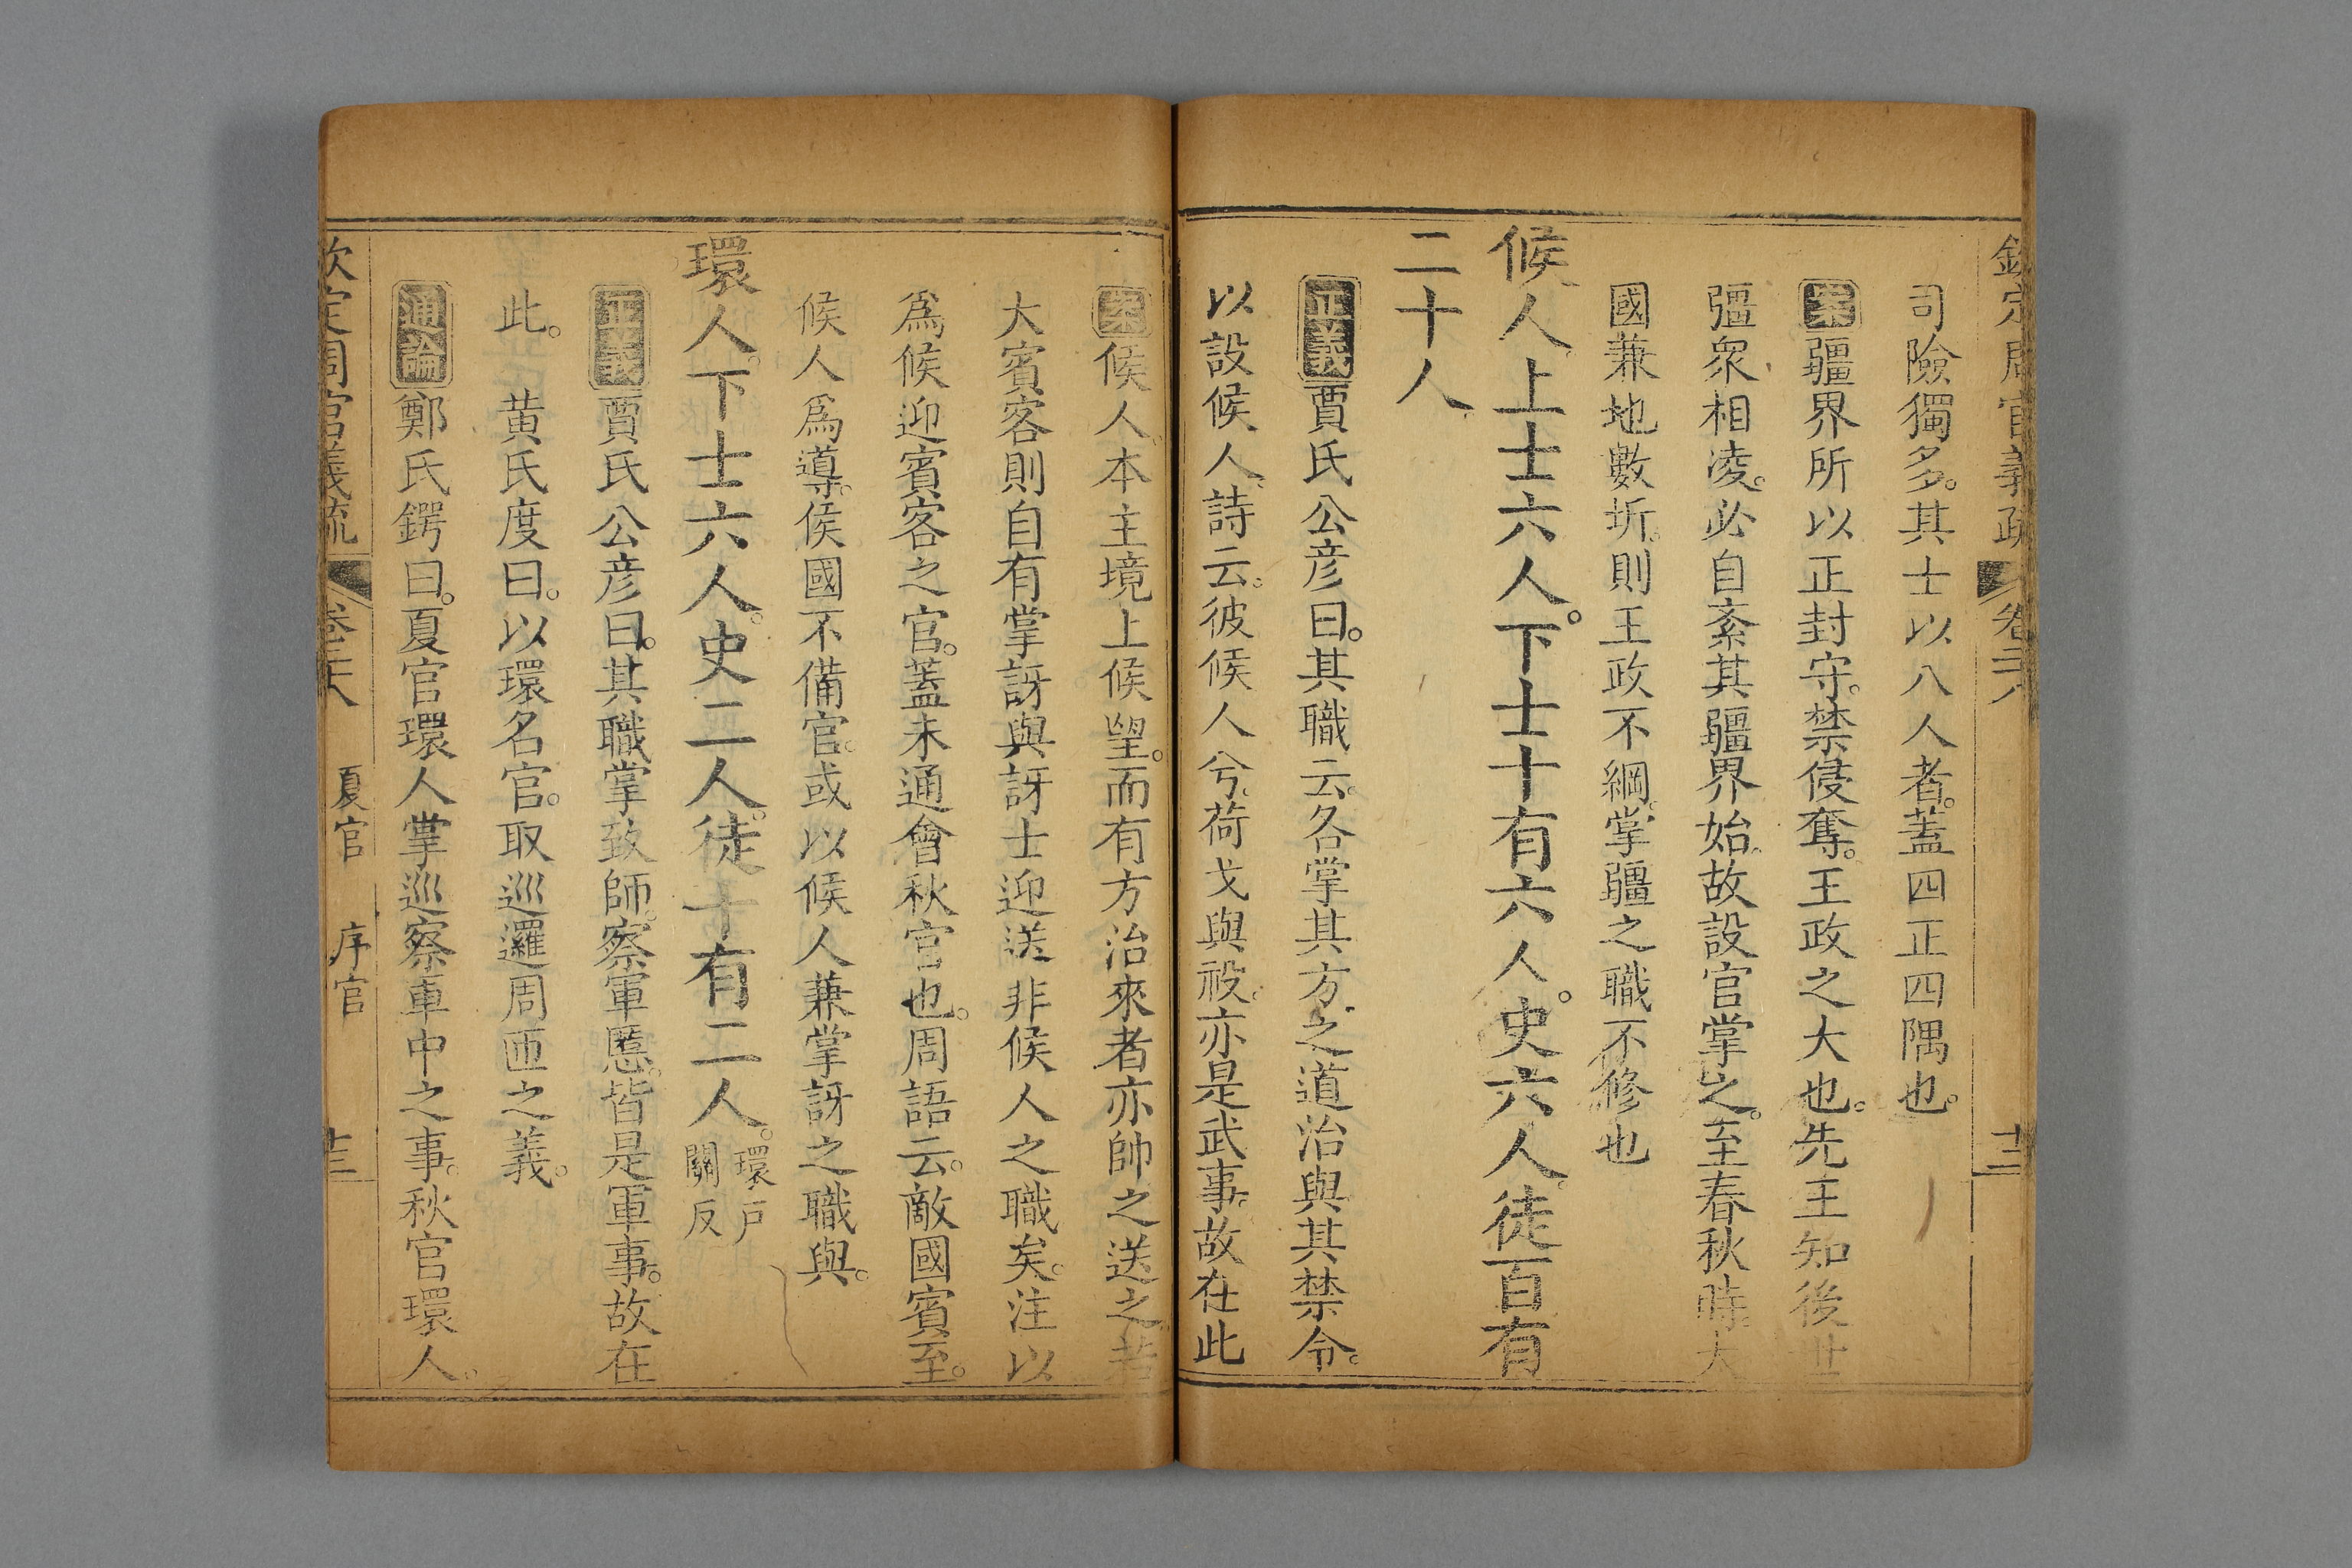 欽定周官義疏 卷二十八 十二
司險獨多。其士以八人者。蓋四正四隅也。
案疆界所以正封守。禁侵奪。王政之大也。先王知後世
彊衆相凌。必自紊其疆界始。故設官掌之。至春秋時。大
國兼地數圻。則王政不綱。掌疆之職不修也
候人。上士六人。下士十有六人。史六人。徒百有
二十人。
正義賈氏公彦曰。其職云。各掌其方之道治與其禁令。
以設候人。詩云。彼候人兮。荷戈與祋。亦是武事。故在此
案候人。本主境上候望。而有方治來者亦帥之送之。若
大賓客則自有掌訝與訝士迎送非候人之職矣。注以
爲候迎賓客之官。蓋未通會秋官也。周語云。敵國賓至。
候人爲導。侯國不備官。或以候人兼掌訝之職與。
環人。下士六人。史二人。徒十有二人。環戶關反
正義賈氏公彦曰。其職掌致師。察軍慝。皆是軍事。故在
此。 黄氏度曰。以環名官。取巡邏周匝之義。
通論鄭氏鍔曰。夏官環人掌巡察軍中之事。秋官環人。
欽定周官義疏 卷二十八 夏官 序官 十三